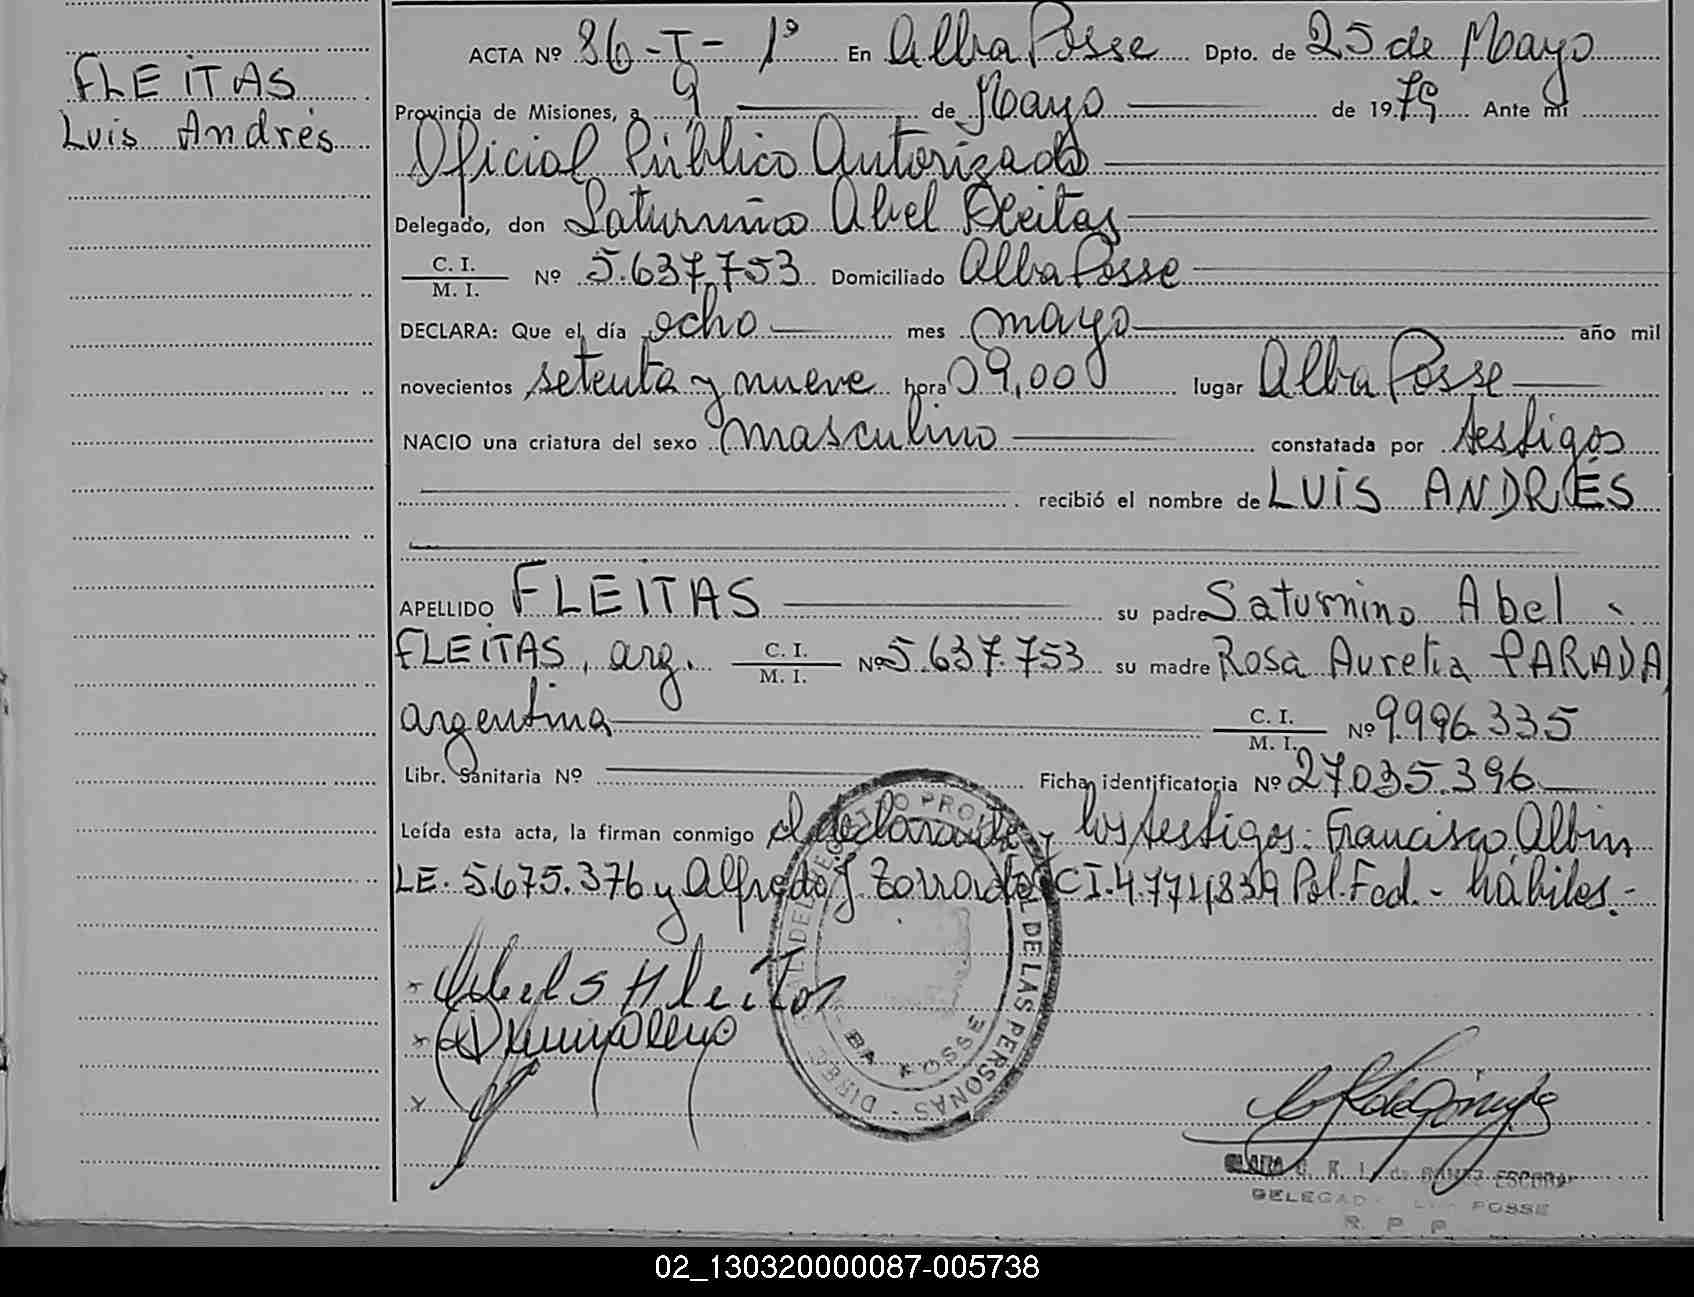 FLEITAS
Luis Andrés
ACTA Nº 86-T-1º En Alba Posse Dpto. de 25 de Mayo
Provincia de Misiones, a 9 de Mayo de 1979 Ante mi
Oficial Público Autorizado
Delegado, don Saturnino Abel Fleitas
C. I. / M. I. Nº 5.637.753 Domiciliado Alba Posse
DECLARA: Que el día ocho mes mayo año mil
novecientos setenta y nueve hora 09,00 lugar Alba Posse
NACIO una criatura del sexo masculino constatada por testigos
recibió el nombre de LUIS ANDRÉS
APELLIDO FLEITAS su padre Saturnino Abel
FLEITAS, arg. C. I. / M. I. Nº 5.637.753 su madre Rosa Aurelia PARADA,
argentina C. I. / M. I. Nº 9.996.335
Libr. Sanitaria Nº Ficha identificatoria Nº 27.035.396
Leída esta acta, la firman conmigo el declarante y los testigos: Francisco Albin
LE. 5.675.376 y Alfredo J. CI. 4.774,839 Pol. Fed. - hábiles.-
DE LAS PERSONAS - DIREC
POSSE
DELEGAD POSSE
R. P. P.
02_130320000087-005738